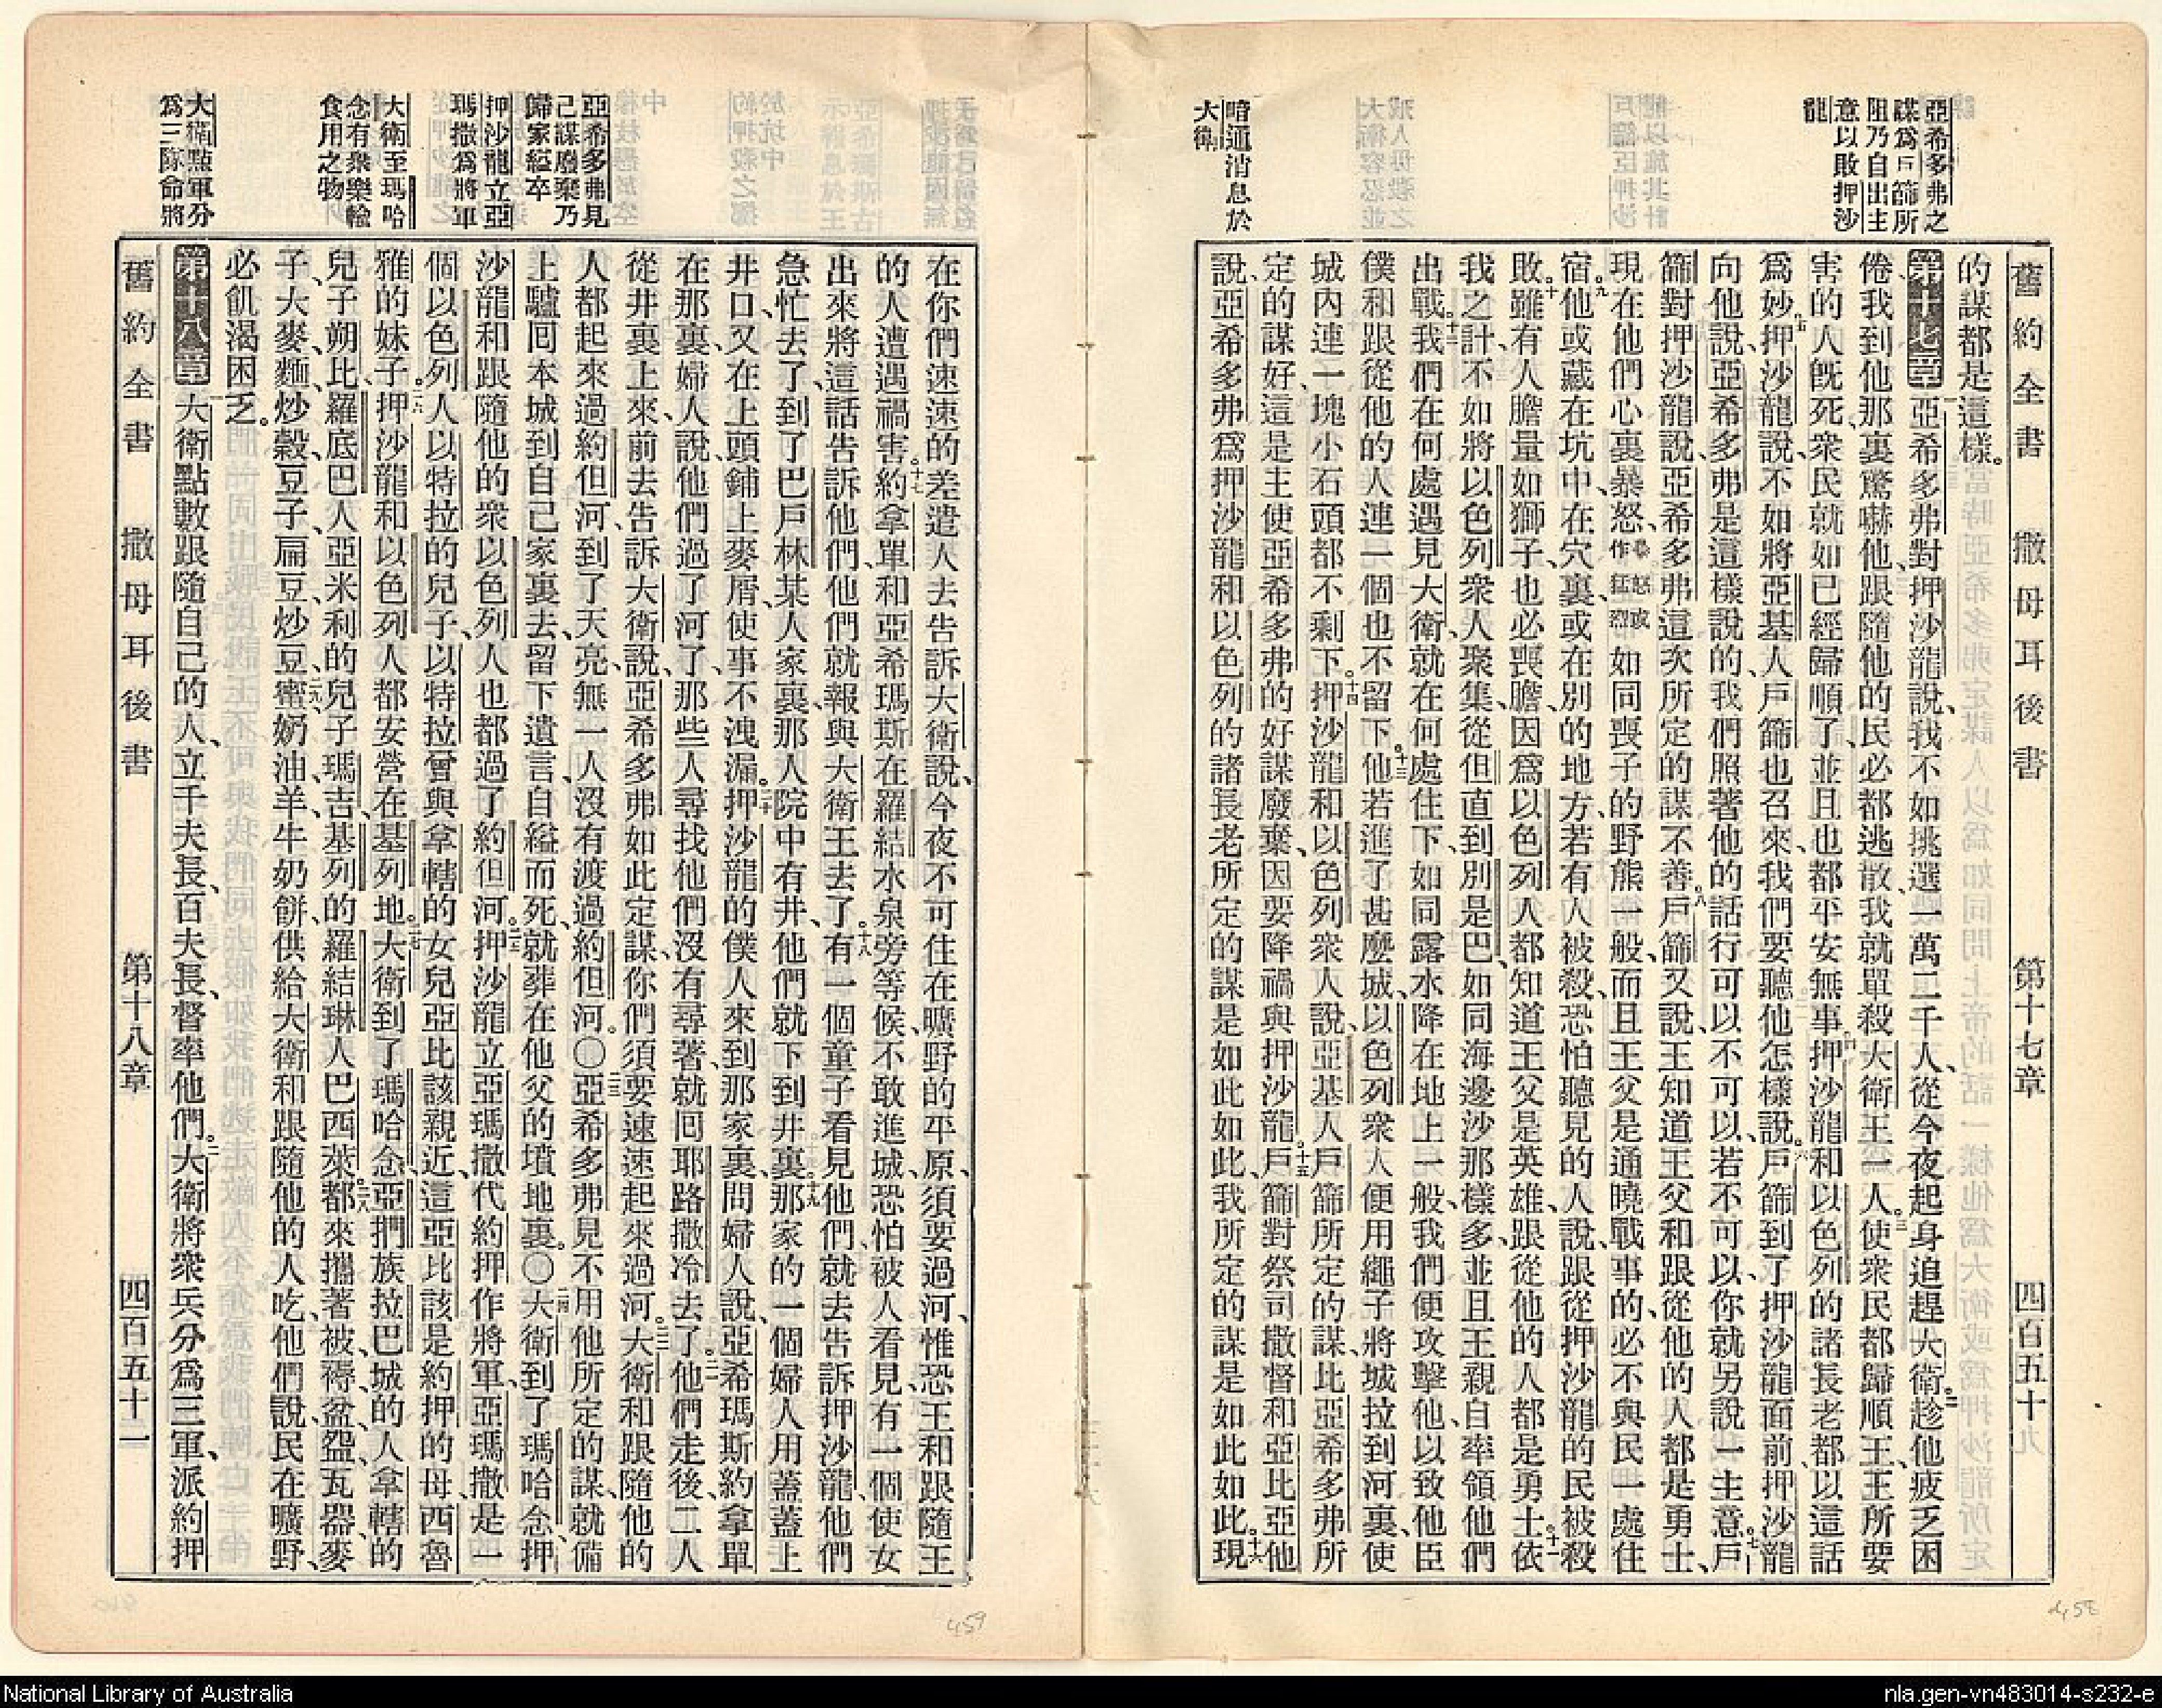 舊約全書 撒母耳後書 第十七章 四百五十九
亞希多弗之
謀爲戶篩所
阻乃自出主
意以敗押沙
龍
暗通消息於
大衛
的謀都是這樣。
第十七章 一亞希多弗對押沙龍說、我不如挑選一萬二千人、從今夜起身追趕大衛。二趁他疲乏困
倦我到他那裏驚嚇他、跟隨他的民必都逃散、我就單殺大衛王一人。三使衆民都歸順王、王所要
害的人旣死、衆民就如已經歸順了、並且也都平安無事。四押沙龍和以色列的諸長老都以這話
爲妙。五押沙龍說、不如將亞基人戶篩也召來、我們要聽他怎樣說。六戶篩到了押沙龍面前、押沙龍
向他說、亞希多弗是這樣說的、我們照著他的話行可以不可以、若不可以、你就另說一主意。七戶
篩對押沙龍說、亞希多弗這次所定的謀不善。八戶篩又說、王知道王父和跟從他的人都是勇士、
現在他們心裏暴怒、暴怒或作猛烈如同喪子的野熊一般、而且王父是通曉戰事的、必不與民一處住
宿。九他或藏在坑中、在穴裏、或在別的地方、若有人被殺、恐怕聽見的人說、跟從押沙龍的民被殺
敗。十雖有人膽量如獅子、也必喪膽、因爲以色列人都知道王父是英雄、跟從他的人都是勇士。十一依
我之計、不如將以色列衆人聚集、從但直到別是巴、如同海邊沙那樣多、並且王親自率領他們
出戰。十二我們在何處遇見大衛、就在何處住下、如同露水降在地上一般、我們便攻擊他、以致他臣
僕和跟從他的人連一個也不留下。十三他若進了甚麼城、以色列衆人便用繩子將城拉到河裏、使
城內連一塊小石頭都不剩下。十四押沙龍和以色列衆人說、亞基人戶篩所定的謀、比亞希多弗所
定的謀好、這是主使亞希多弗的好謀廢棄、因要降禍與押沙龍。十五戶篩對祭司撒督和亞比亞他
說、亞希多弗爲押沙龍和以色列的諸長老所定的謀是如此如此、我所定的謀是如此如此。十六現
亞希多弗見
己謀廢棄乃
歸家縊卒
押沙龍立亞
瑪撒爲將軍
大衛至瑪哈
念有衆樂輸
食用之物
大衛點軍分
爲三隊命將
在你們速速的差遣人去告訴大衛說、今夜不可住在曠野的平原、須要過河、惟恐王和跟隨王
的人遭遇禍害。十七約拿單和亞希瑪斯在羅結水泉旁等候、不敢進城、恐怕被人看見、有一個使女
出來將這話告訴他們、他們就報與大衛王去了。十八有一個童子看見他們、就去告訴押沙龍、他們
急忙去了、到了巴戶林某人家裏、那人院中有井、他們就下到井裏。十九那家的一個婦人用蓋蓋上
井口、又在上頭鋪上麥屑、使事不洩漏。二十押沙龍的僕人來到那家裏、問婦人說、亞希瑪斯約拿單
在那裏、婦人說、他們過了河了、那些人尋找他們、沒有尋著、就囘耶路撒冷去了。二一他們走後、二人
從井裏上來、前去告訴大衛說、亞希多弗如此定謀、你們須要速速起來過河。二二大衛和跟隨他的
人都起來過約但河、到了天亮、無一人沒有渡過約但河。〇二三亞希多弗見不用他所定的謀、就備
上驢囘本城、到自己家裏去、留下遺言、自縊而死、就葬在他父的墳地裏。〇二四大衛到了瑪哈念、押
沙龍和跟隨他的衆以色列人也都過了約但河。二五押沙龍立亞瑪撒代約押作將軍、亞瑪撒是一
個以色列人以特拉的兒子、以特拉曾與拿轄的女兒亞比該親近、這亞比該是約押的母西魯
雅的妹子。二六押沙龍和以色列人都安營在基列地。二七大衛到了瑪哈念、亞捫族拉巴城的人拿轄的
兒子朔比、羅底巴人亞米利的兒子瑪吉、基列的羅結琳人巴西萊、二八都來攜著被褥、盆盌、瓦器、麥
子、大麥、麵、炒穀、豆子、扁豆、炒豆、二九蜜、奶油、羊、牛奶餅、供給大衛和跟隨他的人吃、他們說、民在曠野、
必飢渴困乏。
第十八章 一大衛點數跟隨自己的人、立千夫長、百夫長、督率他們。二大衛將衆兵分爲三軍、派約押
舊約全書 撒母耳後書 第十八章 四百五十一
458
459
National Library of Australia
nla.gen-vn483014-s232-e